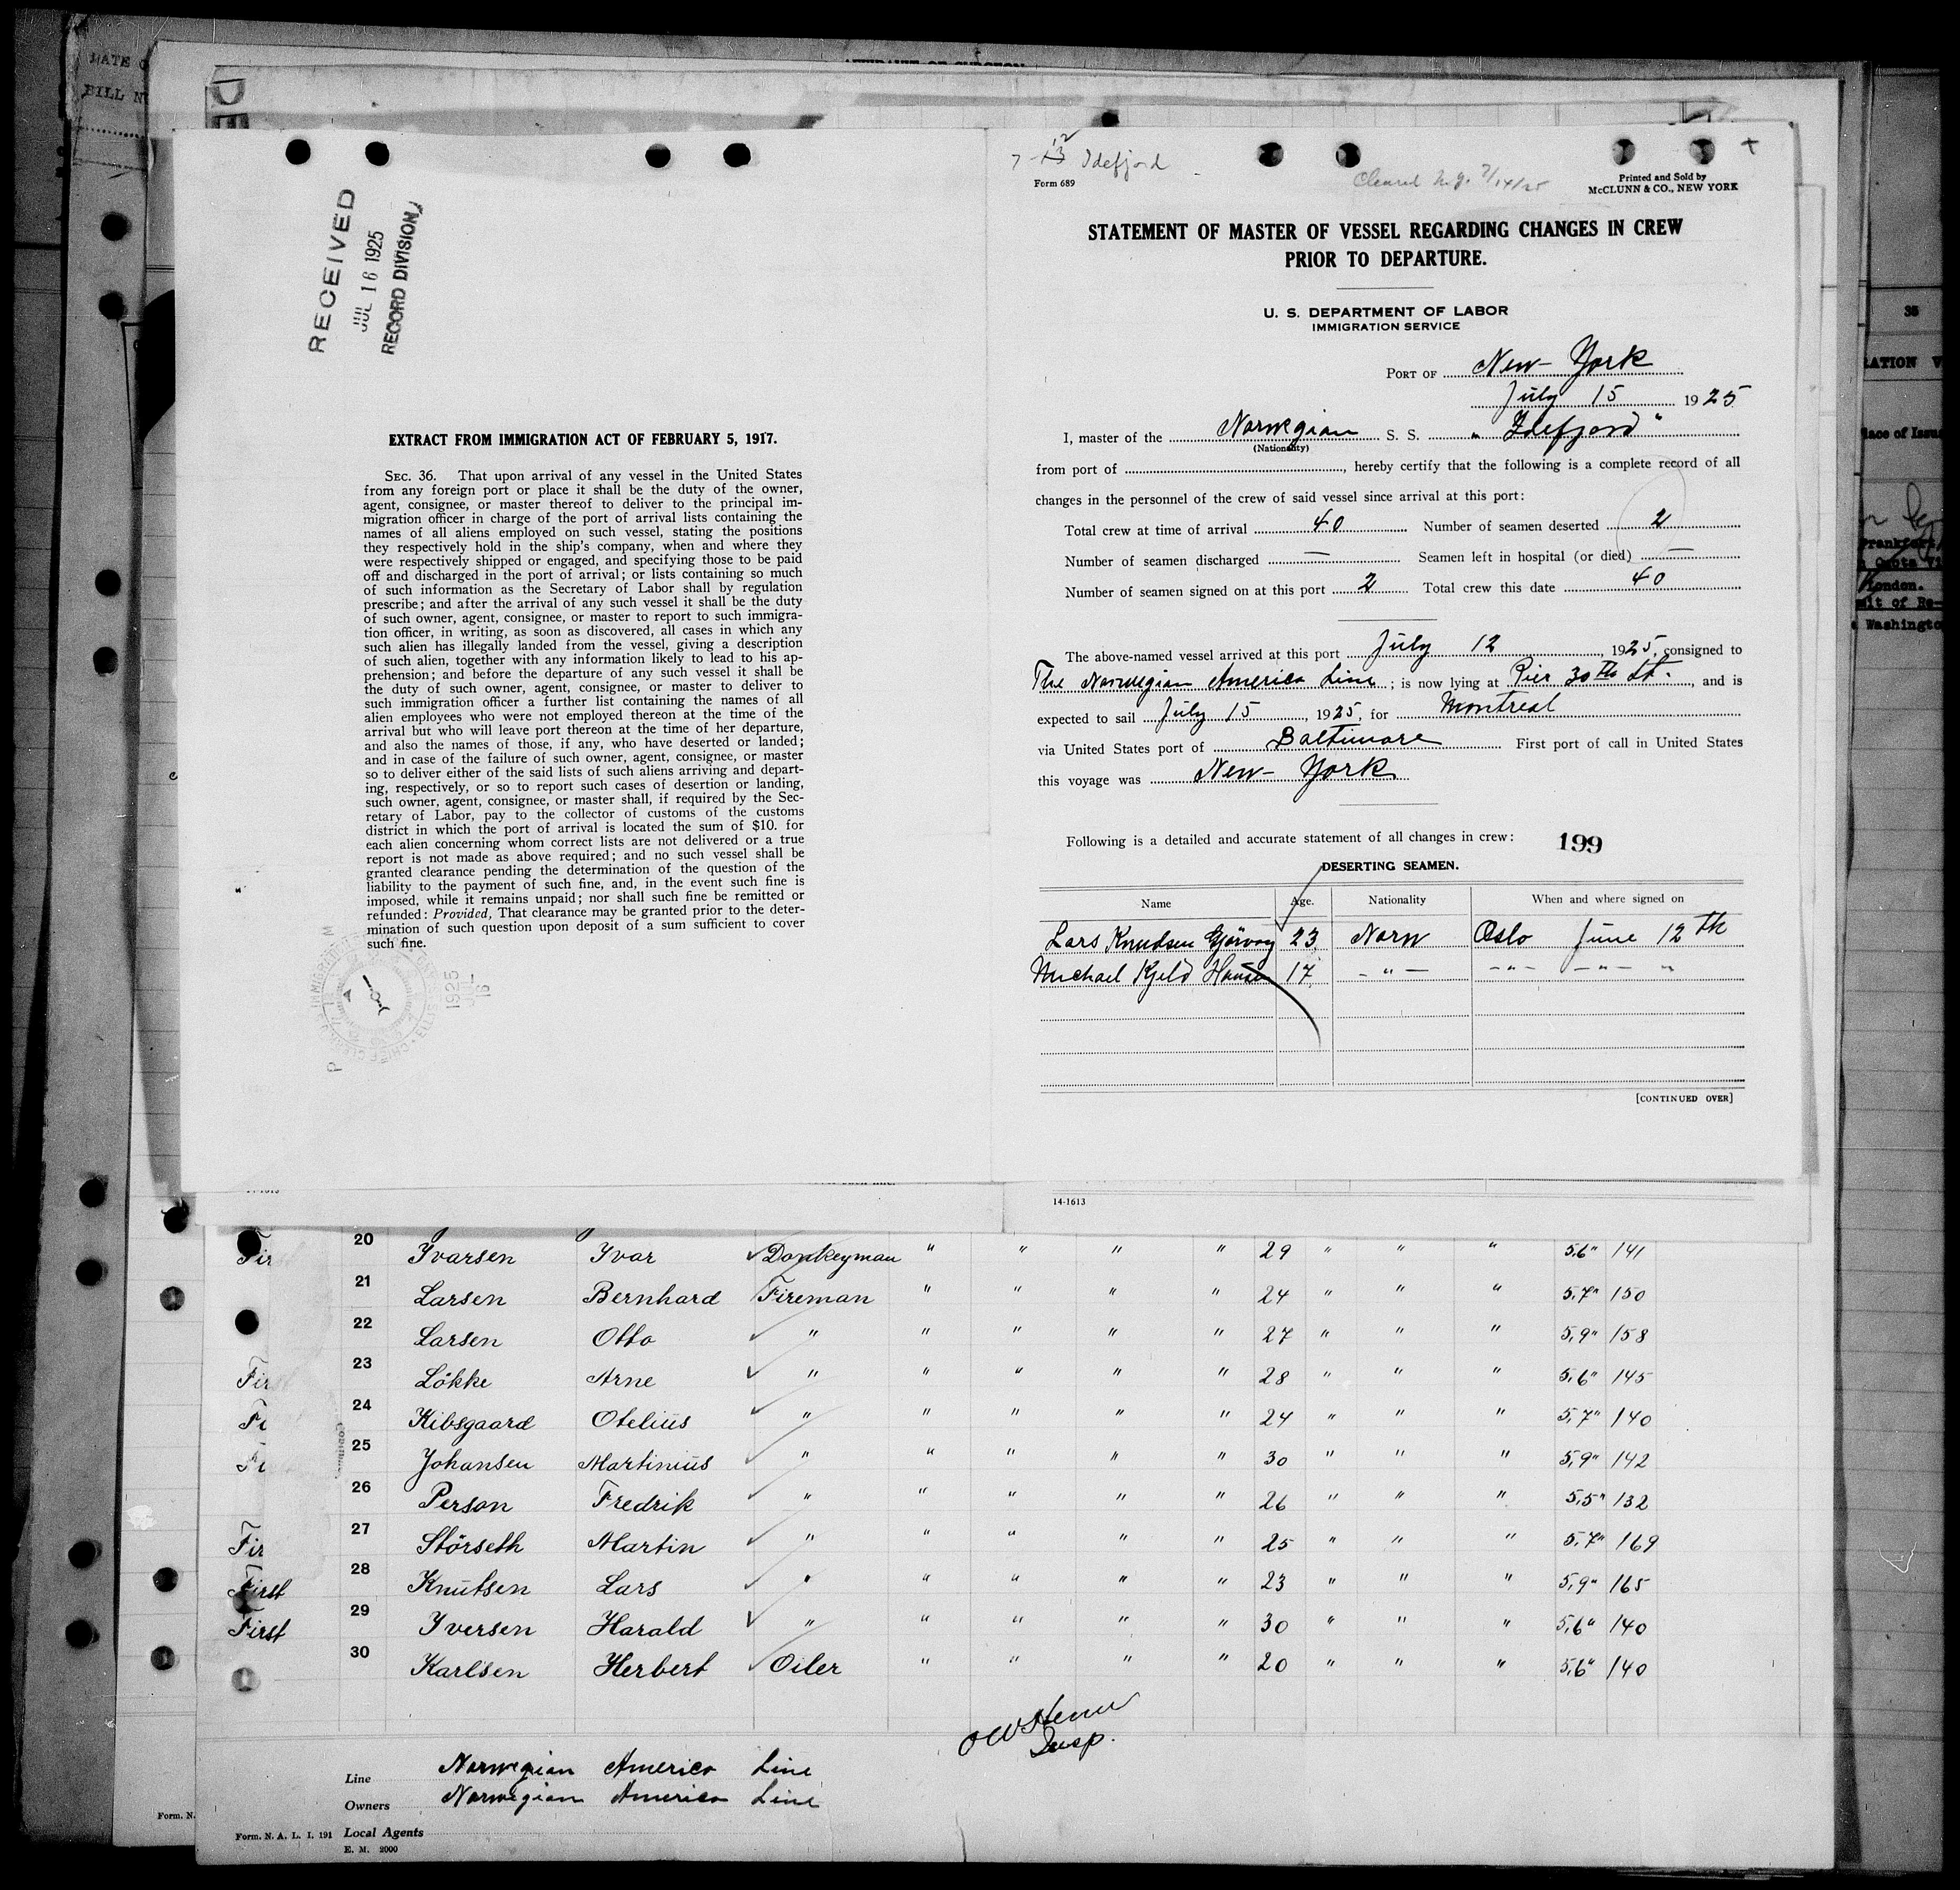 DATE
BILL N
RECEIVED
JUL 16 1925
RECORD DIVISION
EXTRACT FROM IMMIGRATION ACT OF FEBRUARY 5, 1917.
SEC. 36. That upon arrival of any vessel in the United States
from any foreign port or place it shall be the duty of the owner,
agent, consignee, or master thereof to deliver to the principal im-
migration officer in charge of the port of arrival lists containing the
names of all aliens employed on such vessel, stating the positions
they respectively hold in the ship's company, when and where they
were respectively shipped or engaged, and specifying those to be paid
off and discharged in the port of arrival; or lists containing so much
of such information as the Secretary of Labor shall by regulation
prescribe; and after the arrival of any such vessel it shall be the duty
of such owner, agent, consignee, or master to report to such immigra-
tion officer, in writing, as soon as discovered, all cases in which any
such alien has illegally landed from the vessel, giving a description
of such alien, together with any information likely to lead to his ap-
prehension; and before the departure of any such vessel it shall be
the duty of such owner, agent, consignee, or master to deliver to
such immigration officer a further list containing the names of all
alien employees who were not employed thereon at the time of the
arrival but who will leave port thereon at the time of her departure,
and also the names of those, if any, who have deserted or landed;
and in case of the failure of such owner, agent, consignee, or master
so to deliver either of the said lists of such aliens arriving and depart-
ing, respectively, or so to report such cases of desertion or landing,
such owner, agent, consignee, or master shall, if required by the Sec-
retary of Labor, pay to the collector of customs of the customs
district in which the port of arrival is located the sum of $10. for
each alien concerning whom correct lists are not delivered or a true
report is not made as above required; and no such vessel shall be
granted clearance pending the determination of the question of the
liability to the payment of such fine, and, in the event such fine is
imposed, while it remains unpaid; nor shall such fine be remitted or
refunded: Provided, That clearance may be granted prior to the deter-
mination of such question upon deposit of a sum sufficient to cover
such fine.
1925
JUL
16
7-12 Idefjord
Form 689
Cleared N.Y. 7/14/25
Printed and Sold by
McCLUNN & CO., NEW YORK
STATEMENT OF MASTER OF VESSEL REGARDING CHANGES IN CREW
PRIOR TO DEPARTURE.
U. S. DEPARTMENT OF LABOR
IMMIGRATION SERVICE
PORT OF New-York
July 15 1925
I, master of the Norwegian S. S. "Idefjord"
(Nationality)
from port of , hereby certify that the following is a complete record of all
changes in the personnel of the crew of said vessel since arrival at this port:
Total crew at time of arrival 40 Number of seamen deserted 2
Number of seamen discharged — Seamen left in hospital (or died) —
Number of seamen signed on at this port 2 Total crew this date 40
The above-named vessel arrived at this port July 12, 1925, consigned to
The Norwegian America Line; is now lying at Pier 30th St., and is
expected to sail July 15, 1925, for Montreal
via United States port of Baltimore First port of call in United States
this voyage was New-York
Following is a detailed and accurate statement of all changes in crew: 199
DESERTING SEAMEN.
Name Age. Nationality When and where signed on
Lars Knudsen 23 Norw Oslo June 12th
Michael Kjeld Hansen 17 - " - - " - - " - "
[CONTINUED OVER]
14-1613
20 Yvarsen Yvar Donkeyman " " " " 29 " " " 5.6" 141
21 Larsen Bernhard Fireman " " " " 24 " " " 5.7" 150
22 Larsen Otto " " " " " 27 " " " 5,9" 158
Fir 23 Lökke Arne " " " " " 28 " " " 5,6" 145
24 Kibsgaard Otelius " " " " " 24 " " " 5,7" 140
25 Johansen Martinius " " " " " 30 " " " 5,9" 142
26 Person Fredrik " " " " " 26 " " " 5,5" 132
Fir 27 Störseth Martin " " " " " 25 " " " 5,7" 169
First 28 Knutsen Lars " " " " " 23 " " " 5,9" 165
First 29 Yversen Harald " " " " " 30 " " " 5,6" 140
30 Karlsen Herbert Oiler " " " " 20 " " " 5,6" 140
Insp.
Line Norwegian America Line
Owners Norwegian America Line
Form. N. A. L. I. 191 Local Agents
E. M. 2000
Form. N.
35
RATION V
lace of Issu
Frankfort
London.
mit of Re-
Washingto